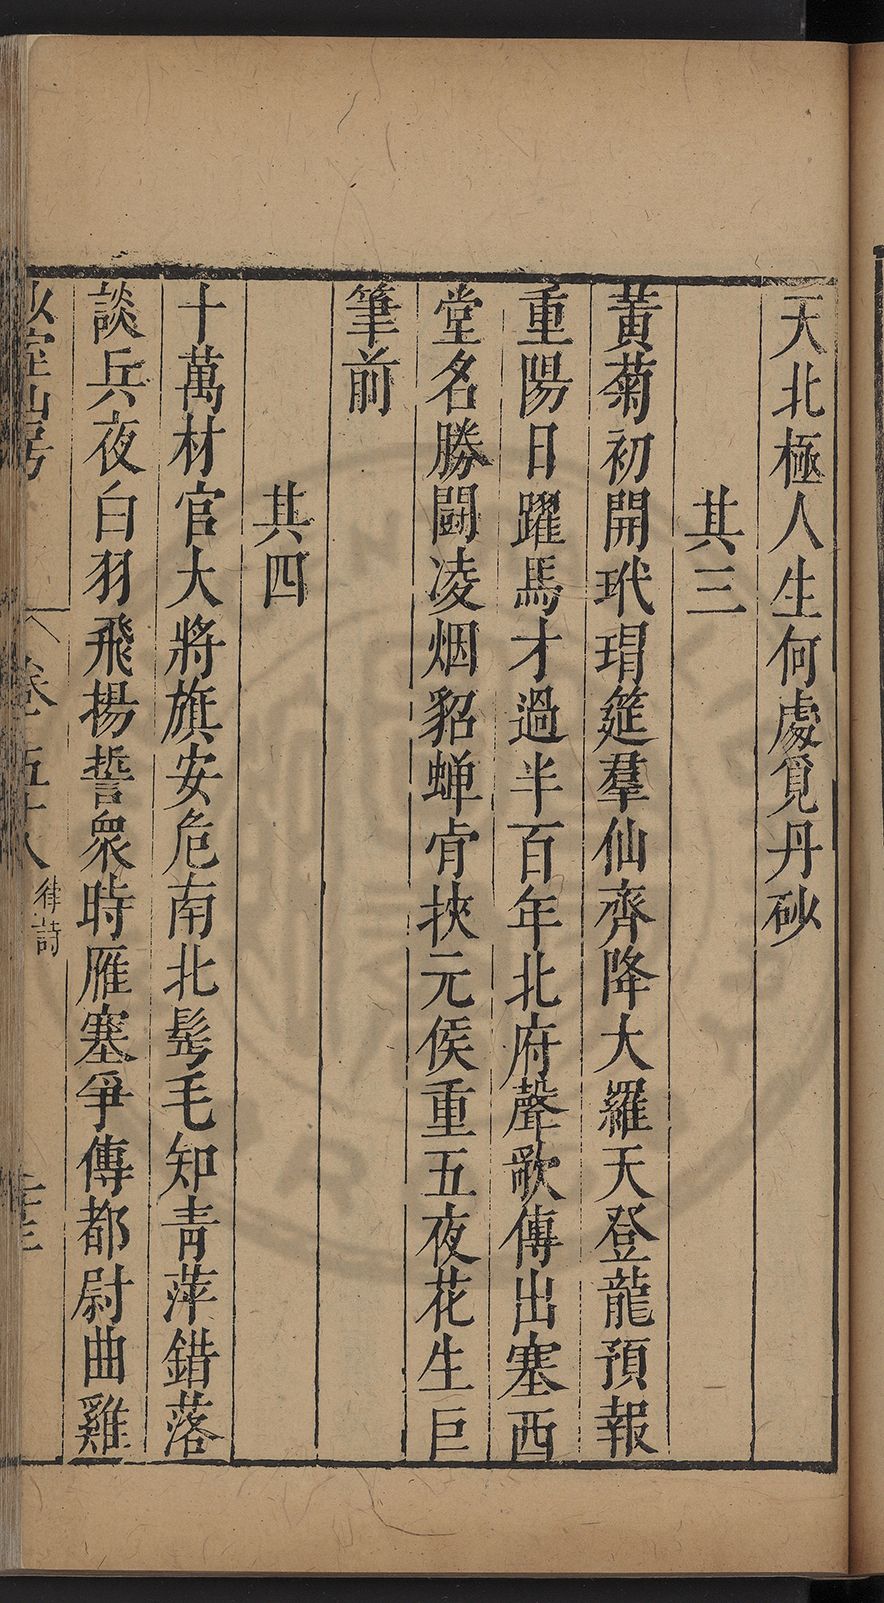 天北極人生何處覓丹砂
其三
黃菊初開玳瑁筵羣仙齊降大羅天登龍預報
重陽日躍馬才過半百年北府聲歌傳出塞西
堂名勝鬪凌烟貂蝉肯挾元侯重五夜花生巨
筆前
其四
十萬材官大將旗安危南北髩毛知青萍錯落
談兵夜白羽飛揚誓衆時雁塞爭傳都尉曲雞
山房
卷 五十八 律詩